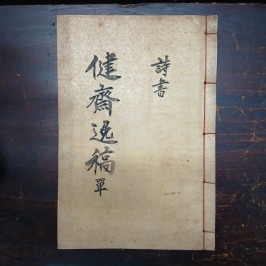 健齋逸稿單
詩書